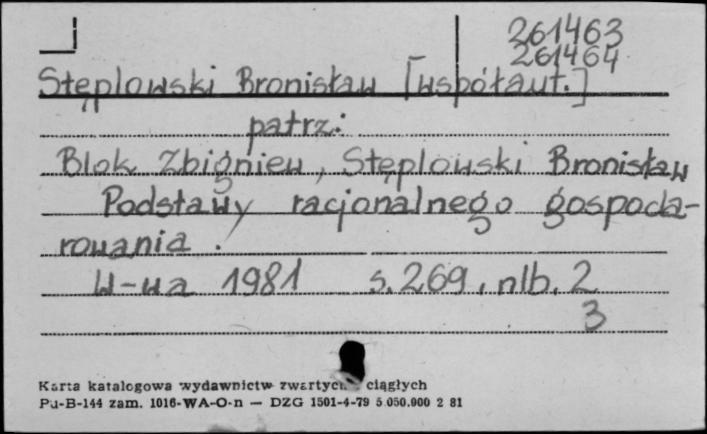 261463
261464
Stęplowski Bronisław [współaut.]
patrz:
Blok Zbigniew, Stęplowski Bronisław
Podstawy racjonalnego gospoda-
rowania.
W-wa 1981 s. 269, nlb. 2
3
Karta katalogowa wydawnictw zwartych ciągłych
Pu-B-144 zam. 1016-WA-O-n — DZG 1501-4-79 5.050.000 2 81